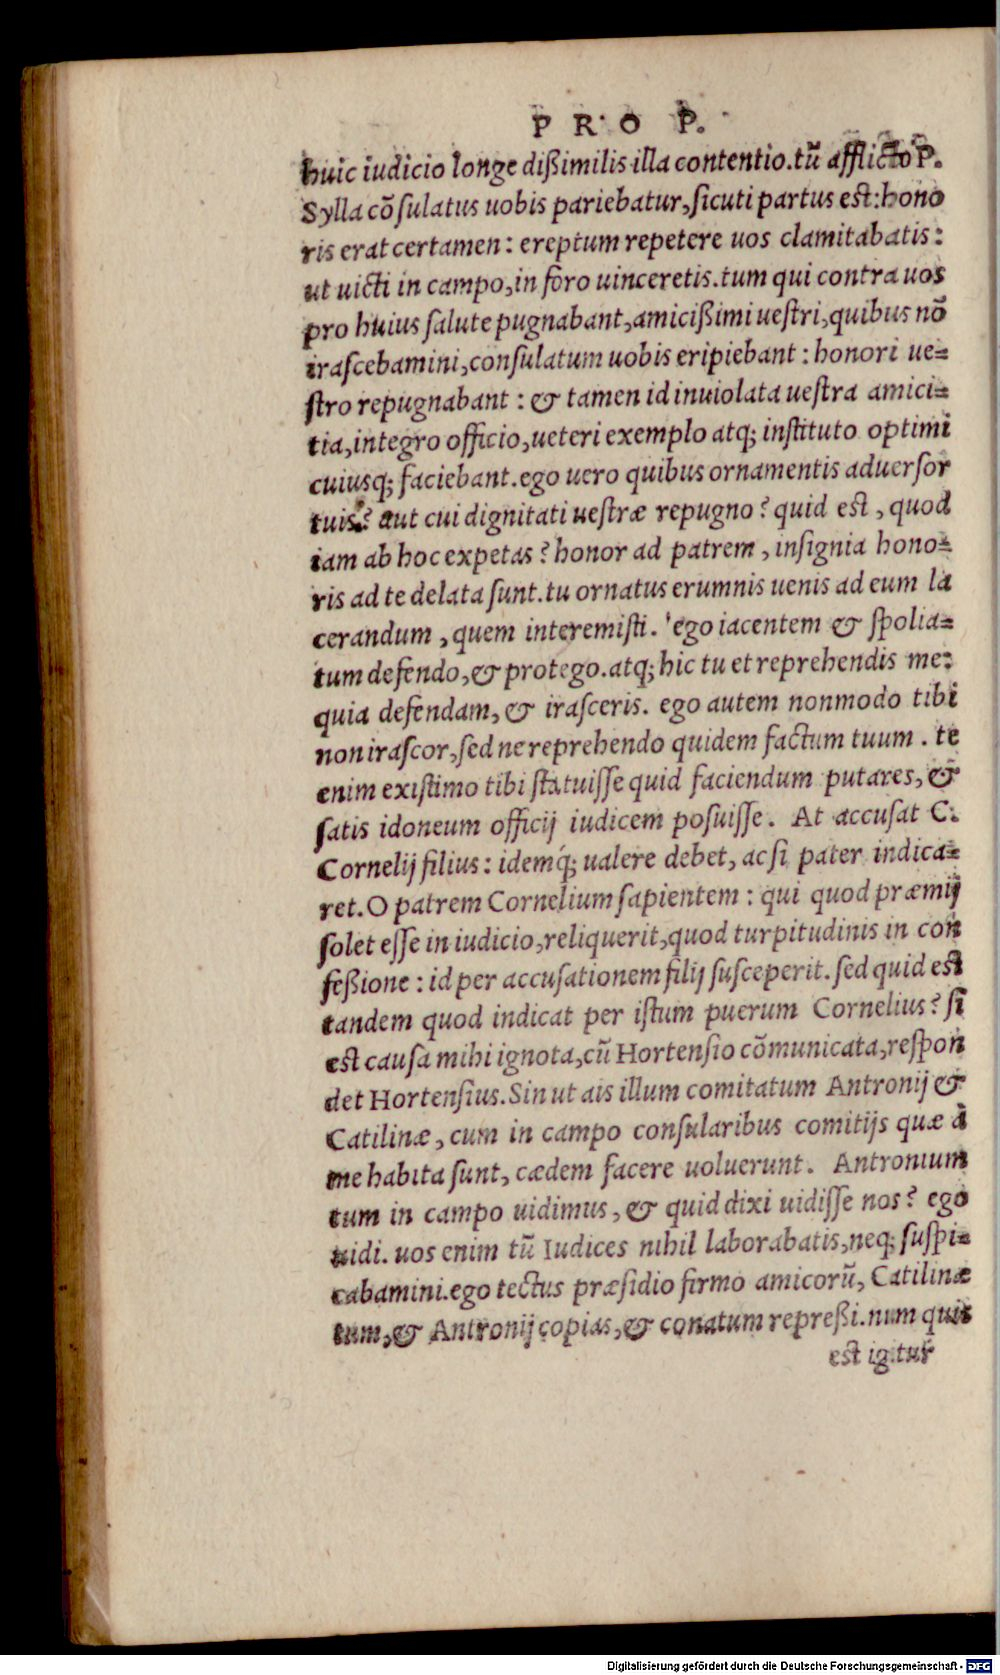 PRO P.
huic iudicio longe dißimilis illa contentio.tũ afflicto P.
Sylla cõſulatus uobis pariebatur,ſicuti partus est:hono
ris erat certamen: ereptum repetere uos clamitabatis:
ut uicti in campo,in foro uinceretis.tum qui contra uos
pro huius ſalute pugnabant,amicißimi ueſtri,quibus nõ
iraſcebamini,conſulatum uobis eripiebant: honori ue=
ſtro repugnabant: & tamen id inuiolata ueſtra amici=
tia,integro officio,ueteri exemplo atq; inſtituto optimi
cuiusq; faciebant.ego uero quibus ornamentis aduerſor
tuis? aut cui dignitati ueſtræ repugno? quid eſt, quod
iam ab hoc expetas? honor ad patrem, inſignia hono=
ris ad te delata ſunt.tu ornatus erumnis uenis ad eum la
cerandum, quem interemiſti. ego iacentem & ſpolia=
tum defendo,& protego.atq; hic tu et reprehendis me:
quia defendam, & iraſceris. ego autem nonmodo tibi
non iraſcor,ſed ne reprehendo quidem factum tuum. te
enim exiſtimo tibi ſtatuiſſe quid faciendum putares, &
ſatis idoneum officij iudicem poſuiſſe. At accuſat C.
Cornelij filius: idemq́; ualere debet, ac ſi pater indica=
ret.O patrem Cornelium ſapientem: qui quod præmij
ſolet eſſe in iudicio,reliquerit,quod turpitudinis in con
feßione: id per accuſationem filij ſuſceperit. ſed quid eſt
tandem quod indicat per iſtum puerum Cornelius? ſi
eſt cauſa mihi ignota,cũ Hortenſio cõmunicata,reſpon
det Hortenſius.Sin ut ais illum comitatum Antronij &
Catilinæ, cum in campo conſularibus comitijs quæ à
me habita ſunt, cædem facere uoluerunt. Antronium
tum in campo uidimus, & quid dixi uidiſſe nos? ego
uidi. uos enim tũ Iudices nihil laborabatis,neq; ſuſpi=
cabamini.ego tectus præſidio firmo amicorũ, Catilinæ
tum,& Antronij copias,& conatum repreßi.num quis
eſt igitur
Digitalisierung gefördert durch die Deutsche Forschungsgemeinschaft - DFG